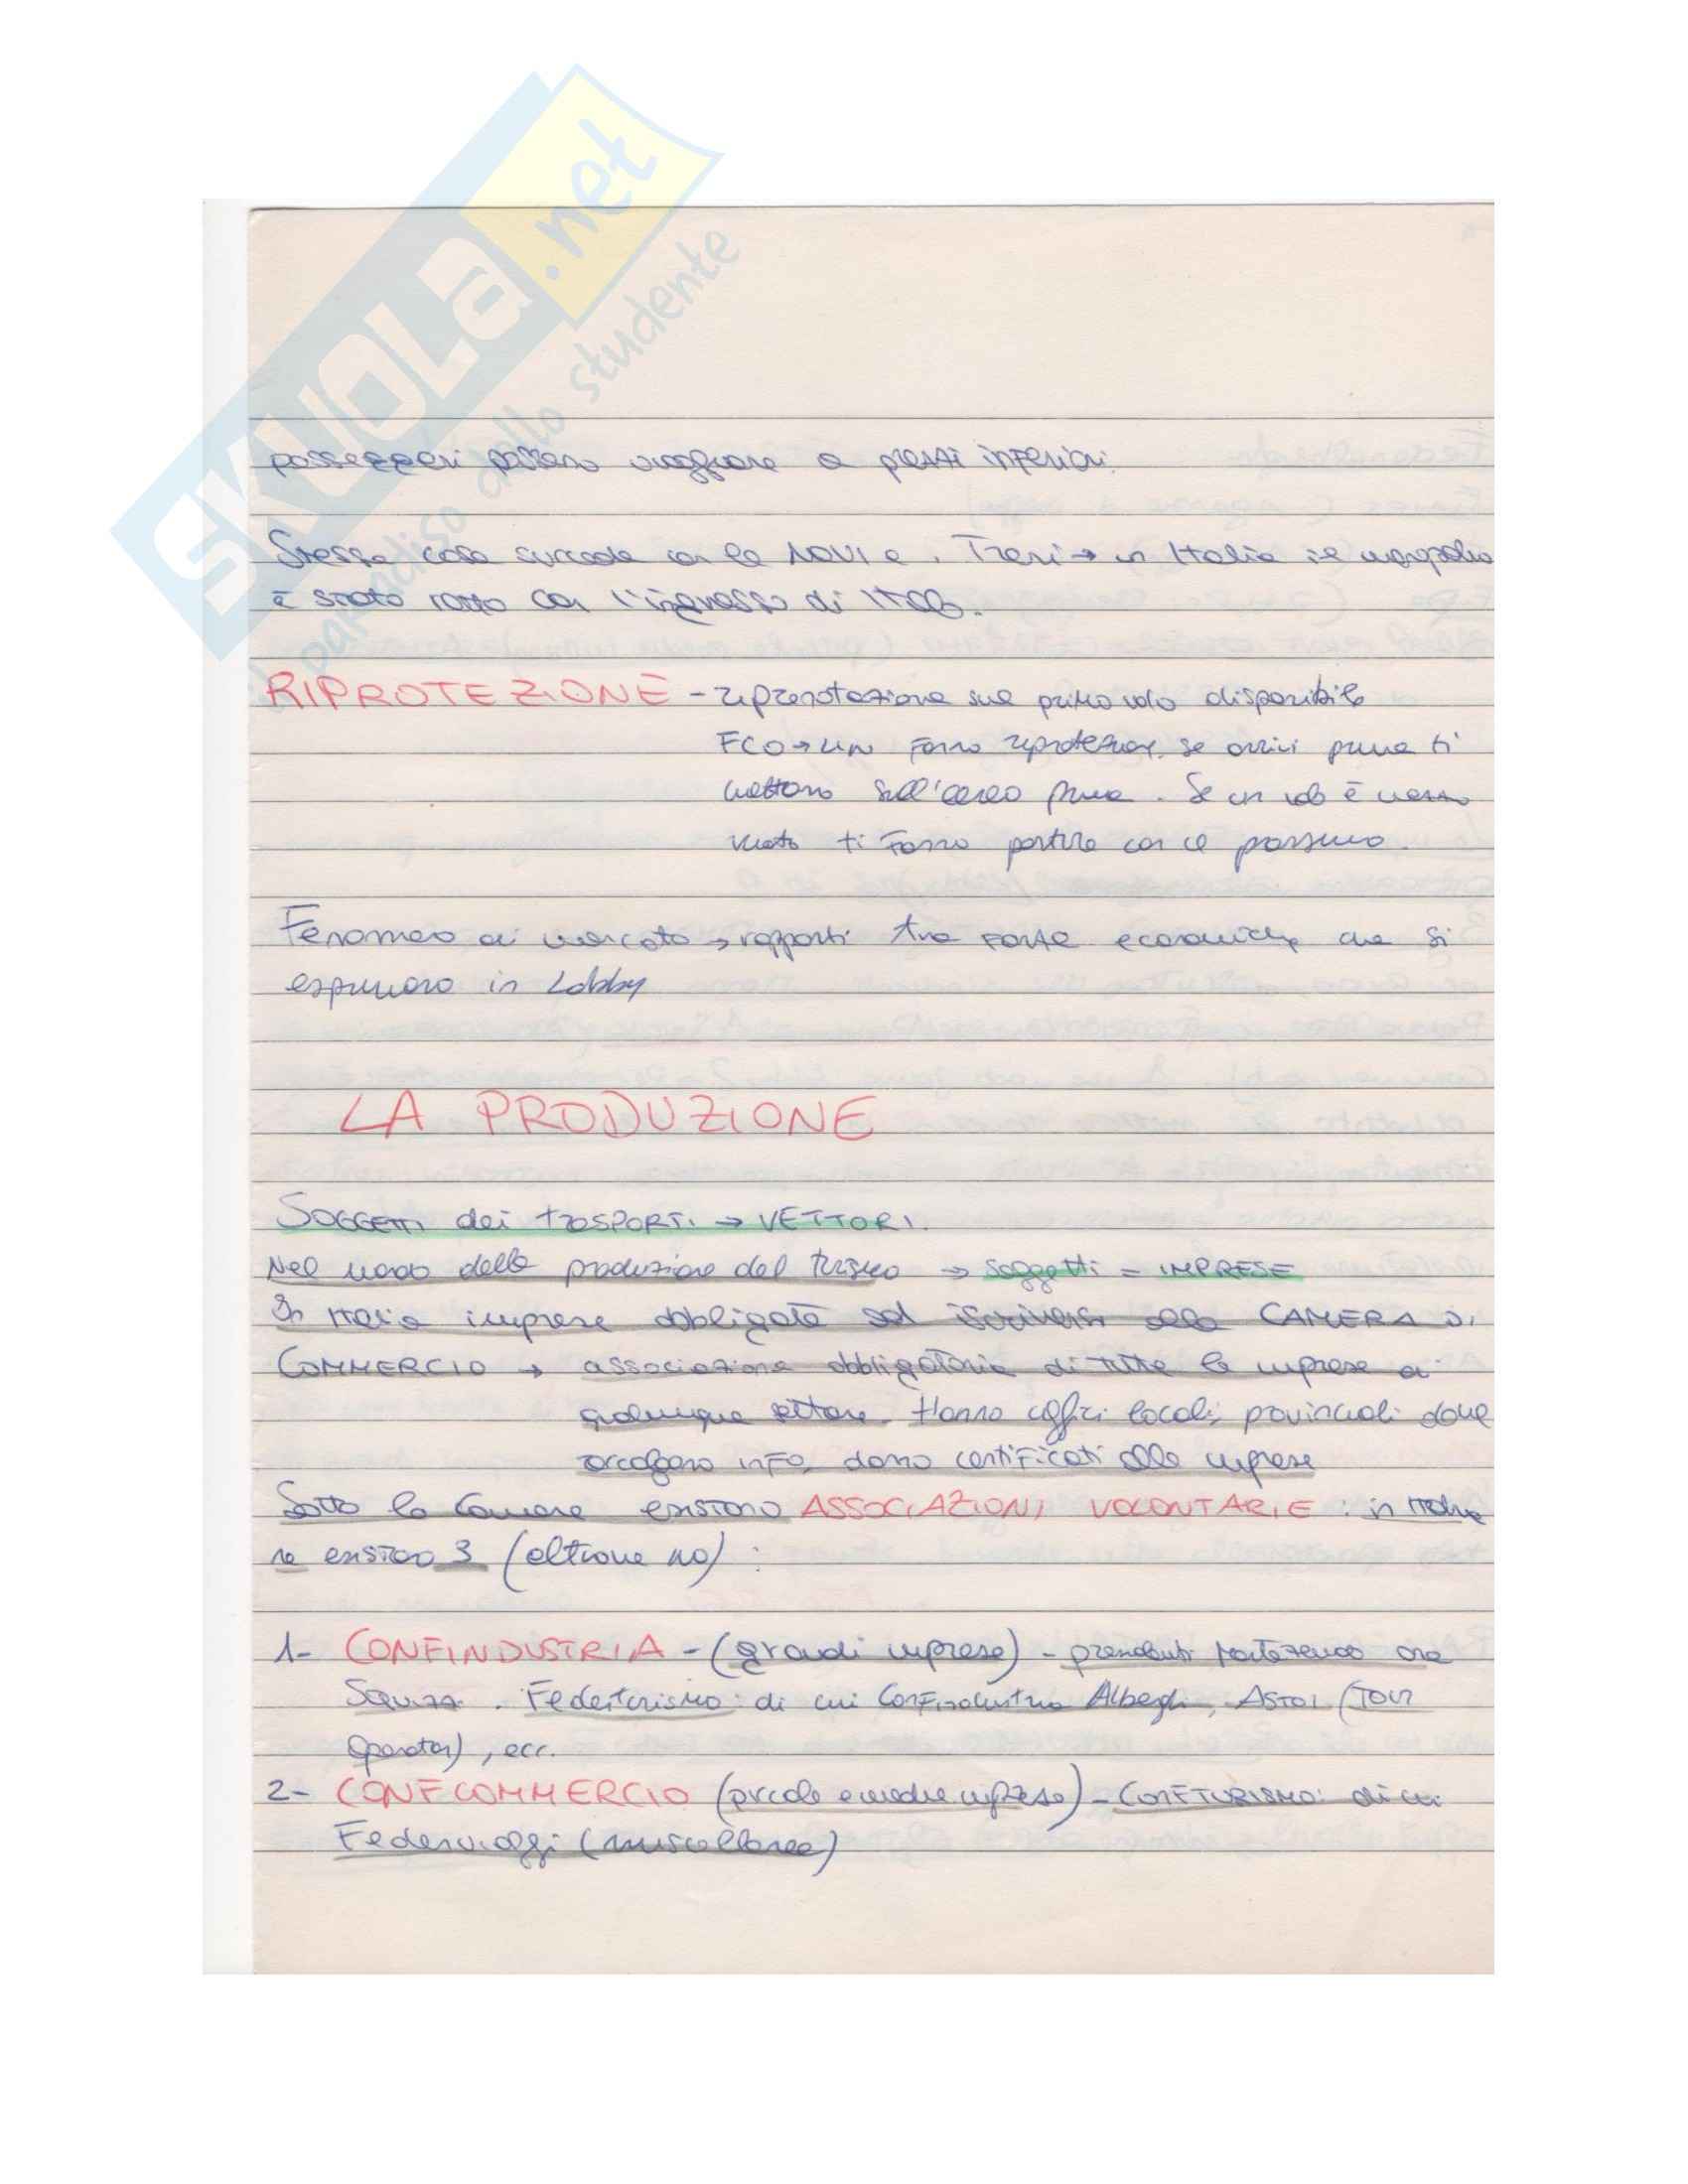 SKUOLA.net
il paradiso dello studente
passeggeri possano viaggiare a prezzi inferiori.
Stessa cosa succede con le NAVI e. Treni → in Italia il monopolio
è stato rotto con l'ingresso di ITALO.
RIPROTEZIONE - riprenotazione sul primo volo disponibile
FCO → LIN fanno riprotezione, se arrivi prima ti
mettono sull'aereo prima. Se un volo è mezzo
vuoto ti fanno partire con il prossimo.
Fenomeno di mercato → rapporti tra forze economiche che si
esprimono in Lobby
LA PRODUZIONE
SOGGETTI dei TRASPORTI → VETTORI.
Nel mondo della produzione del turismo → soggetti = IMPRESE
In Italia imprese obbligate ad iscriversi alla CAMERA DI
COMMERCIO → associazione obbligatoria di tutte le imprese di
qualunque settore. Hanno uffici locali, provinciali dove
raccolgono info, danno certificati alle imprese
Sotto la Camera esistono ASSOCIAZIONI VOLONTARIE : in Italia
ne esistono 3 (altrove no) :
1- CONFINDUSTRIA - (grandi imprese) -
Squinzi. Federturismo: di cui Confindustria Alberghi, ASTOI (TOUR
Operator), ecc.
2- CONFCOMMERCIO (piccole e medie imprese) - CONFTURISMO: di cui
Federviaggi (miscellanea)